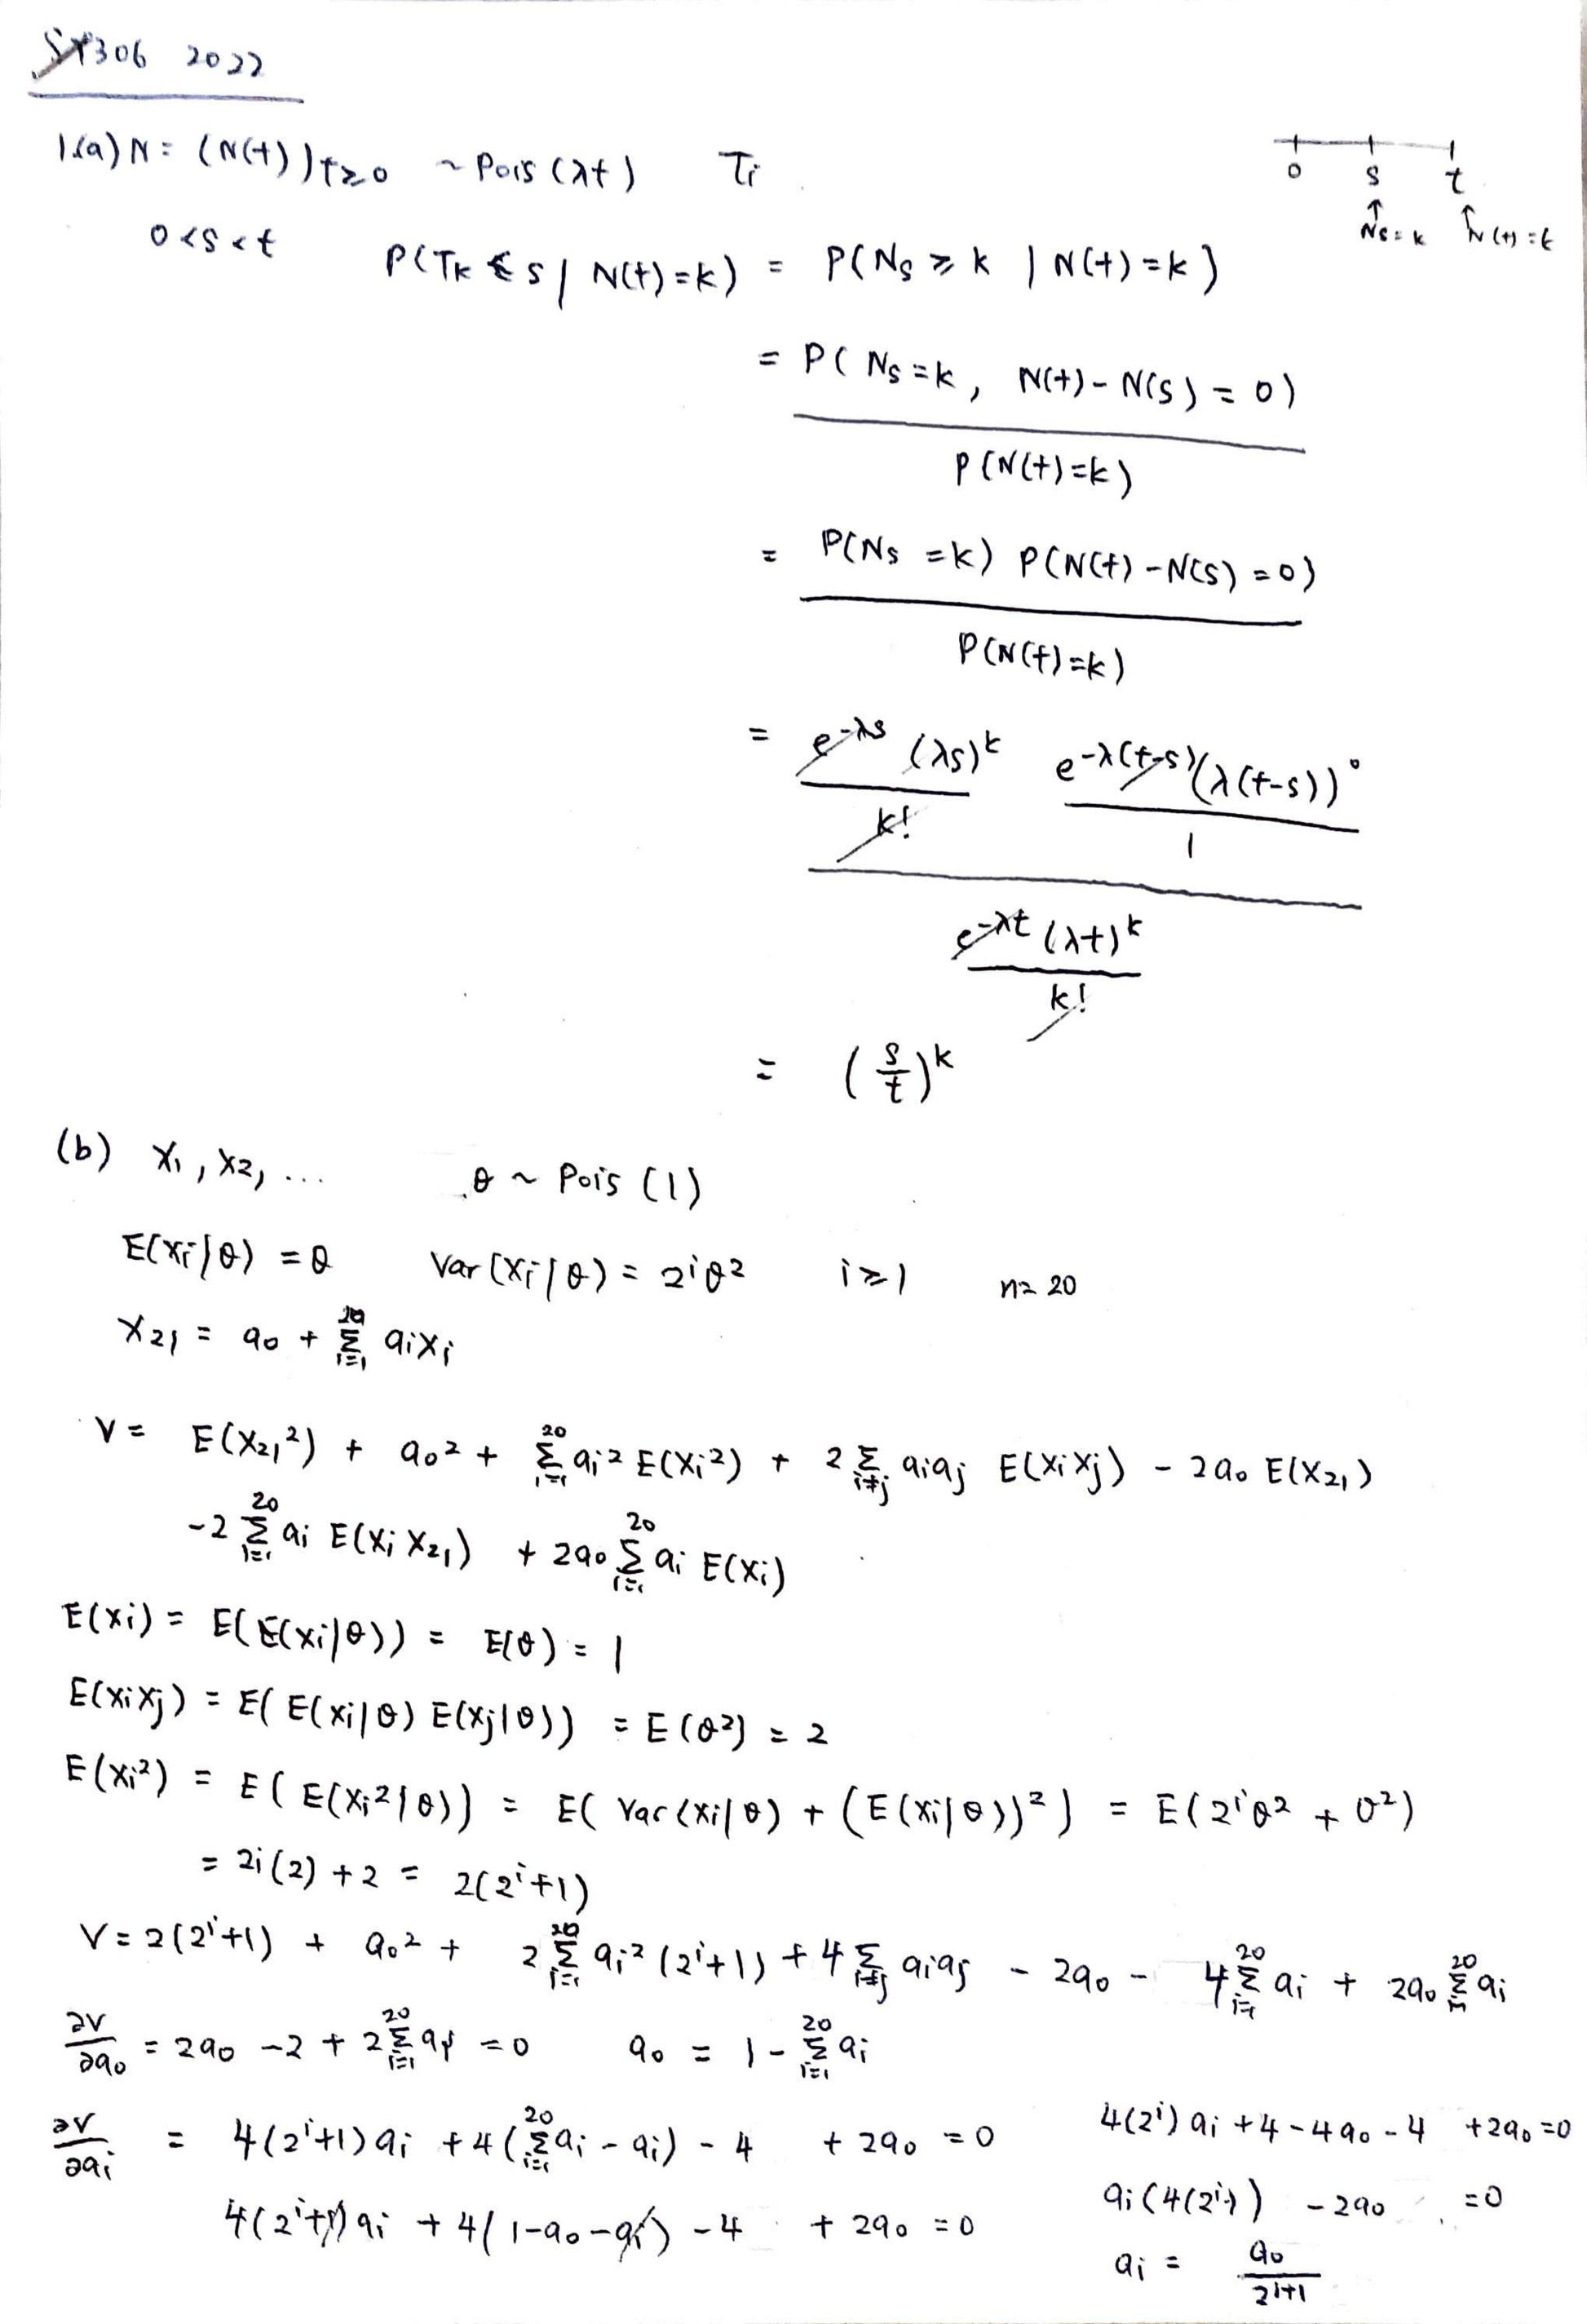 ST306 2022
1.(a) N = (N(t))t≥0 ~ Pois (λt) Ti
0 s t
↑ ↑
Ns = k N(t) = k
0<s<t P(Tk ≤ s | N(t) = k) = P(Ns ≥ k | N(t) = k)
= P(Ns = k, N(t) - N(s) = 0)
P(N(t) = k)
= P(Ns = k) P(N(t) - N(s) = 0)
P(N(t) = k)
= e^-λs (λs)^k e^-λ(t-s) (λ(t-s))^0
k! 1
e^-λt (λt)^k
k!
= (s/t)^k
(b) X1, X2, ... θ ~ Pois (1)
E(Xi|θ) = θ Var(Xi|θ) = 2^i θ^2 i ≥ 1 n = 20
X21 = a0 + Σ_{i=1}^{20} aiXi
V = E(X21^2) + a0^2 + Σ_{i=1}^{20} ai^2 E(Xi^2) + 2 Σ_{i≠j} aiaj E(XiXj) - 2a0 E(X21)
-2 Σ_{i=1}^{20} ai E(Xi X21) + 2a0 Σ_{i=1}^{20} ai E(Xi)
E(Xi) = E(E(Xi|θ)) = E(θ) = 1
E(XiXj) = E(E(Xi|θ) E(Xj|θ)) = E(θ^2) = 2
E(Xi^2) = E(E(Xi^2|θ)) = E(Var(Xi|θ) + (E(Xi|θ))^2) = E(2^i θ^2 + θ^2)
= 2i(2) + 2 = 2(2^i+1)
V = 2(2^i+1) + a0^2 + 2 Σ_{i=1}^{20} ai^2 (2^i+1) + 4 Σ_{i≠j} aiaj - 2a0 - 4 Σ_{i=1}^{20} ai + 2a0 Σ^{20} ai
∂V/∂a0 = 2a0 - 2 + 2 Σ_{i=1}^{20} ai = 0 a0 = 1 - Σ_{i=1}^{20} ai
∂V/∂ai = 4(2^i+1)ai + 4(Σ_{i=1}^{20} ai - ai) - 4 + 2a0 = 0
4(2^i+1)ai + 4(1-a0-ai) - 4 + 2a0 = 0
4(2^i)ai + 4 - 4a0 - 4 + 2a0 = 0
ai(4(2^i)) - 2a0 = 0
ai = a0/2^{i+1}